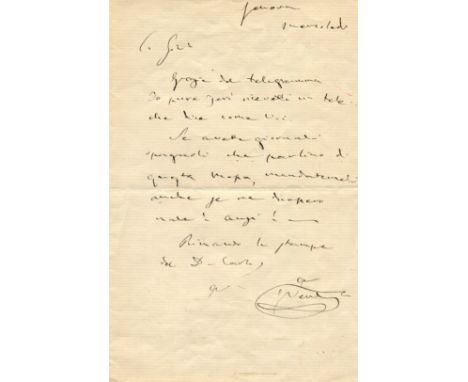 Genova
mercoledì
C. Giul
Grazie del telegramma
Io pure jeri ricevetti un tele
che dice come voi.
Se avete giornali
spagnuoli che parlino di
questa Messa, mandatemeli
anche se ne dicessero
male! Anzi!
Rimando le stampe
del D. Carlos,
G. Verdi